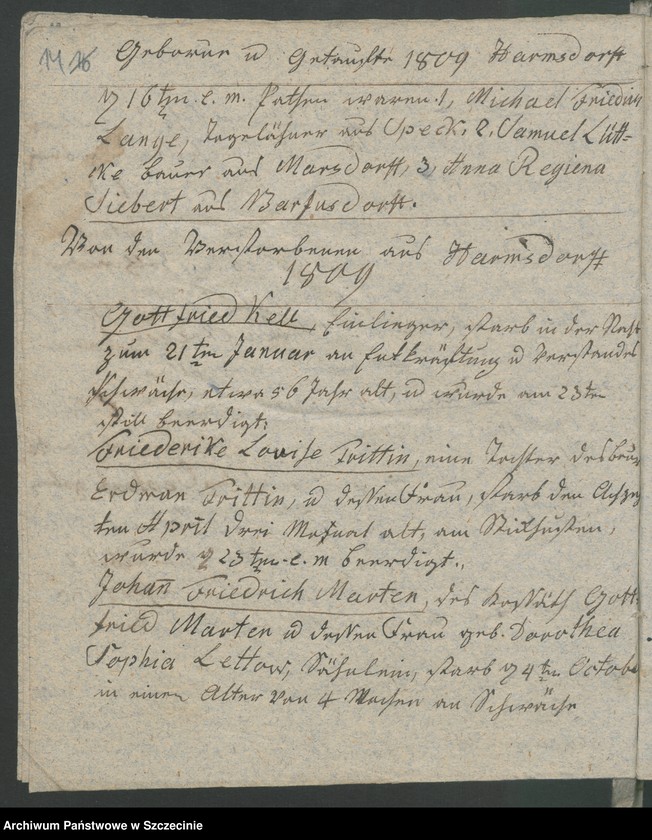 Geborne u Getaufte 1809 Harmsdorff
d 16 tm. e. m. Pathen waren 1, Michael Friedrich
Lange, Tagelöhner aus Speck, 2, Samuel Lütt=
ke Bauer aus Marsdorff, 3, Anna Regiena
Siebert aus Barfusdorff.
Von den Verstorbenen aus Harmsdorff
1809
Gottfried Kell, Einlieger, starb in der Nacht
zum 21 tm Januar an Entkräftung u Verstandes
schwäche, etwa 56 Jahr alt, u wurde am 23 tm
still beerdigt.
Friederike Louise Trittin, eine Tochter des Baur
Erdman Trittin, u dessen Frau, starb den Achzeh
ten April drei Monat alt, am Stickhusten,
wurde d 23 tm. e. m beerdigt.
Johan Friedrich Marten, des Kossäth Gott
fried Marten u dessen Frau geb. Dorothea
Sophia Lettow, Söhnlein, starb d 4 tm Octob
in einem Alter von 4 Wochen an Schwäche
Archiwum Państwowe w Szczecinie